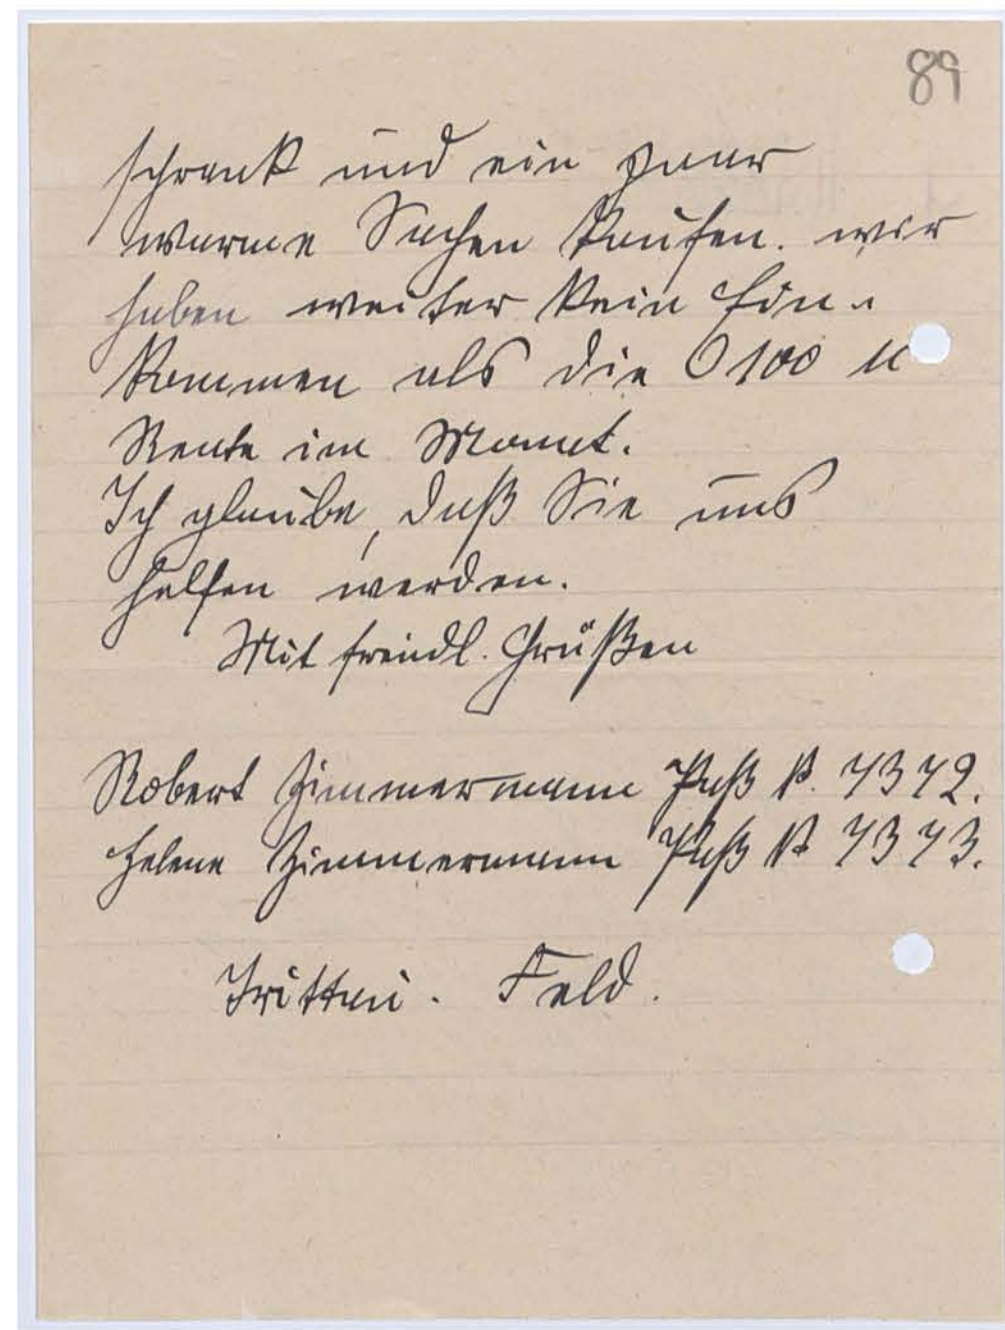 89
schrank und ein paar
warme Sachen kaufen. wir
haben weiter kein Ein-
kommen als die 100 M
Rente im Monat.
Ich glaube, daß Sie uns
helfen werden.
Mit freundl. Grüßen
Robert Zimmermann Paß N. 7372.
Helene Zimmermann Paß N 7373.
Trittau. Feld.